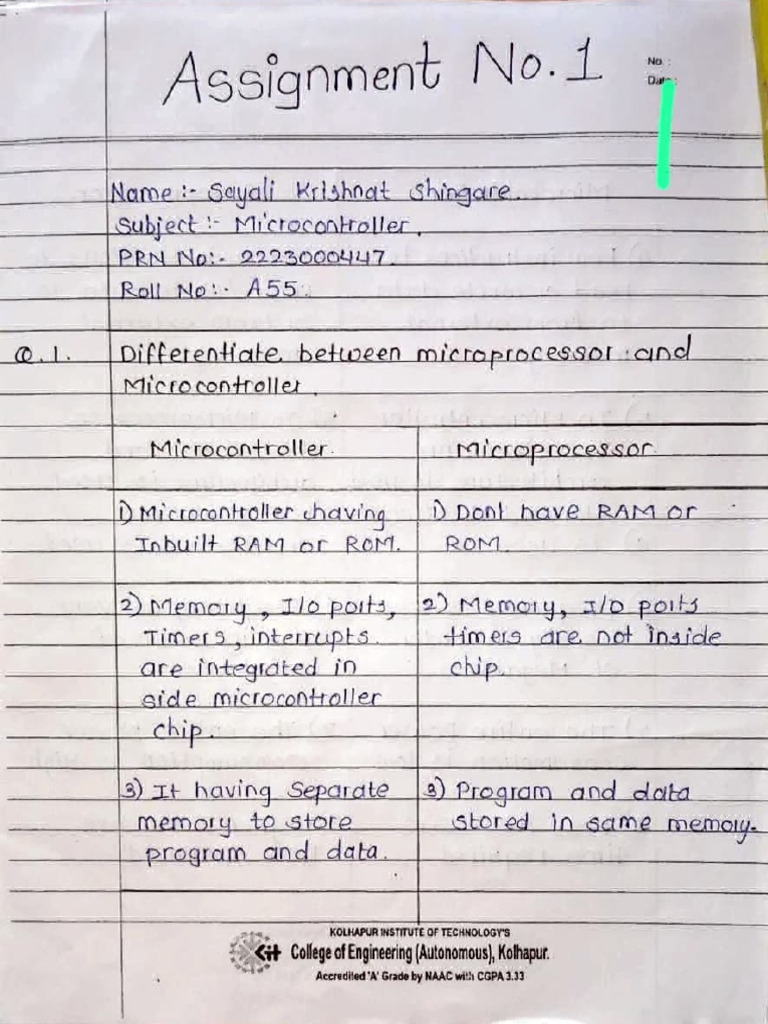 Assignment No. 1
No. :
Date :
Name :- Sayali Krishnat Shingare.
Subject :- Microcontroller.
PRN No:- 2223000447.
Roll No:- A55.
Q. 1. Differentiate between microprocessor and
Microcontroller.
Microcontroller. Microprocessor.
1) Microcontroller having 1) Dont have RAM or
Inbuilt RAM or ROM. ROM.
2) Memory, I/O ports, 2) Memory, I/O ports
Timers, interrupts. timers are not inside
are integrated in chip.
side microcontroller
chip.
3) It having Separate 3) Program and data
memory to store stored in same memory.
program and data.
KOLHAPUR INSTITUTE OF TECHNOLOGY'S
Kit College of Engineering (Autonomous), Kolhapur.
Accredited 'A' Grade by NAAC with CGPA 3.33